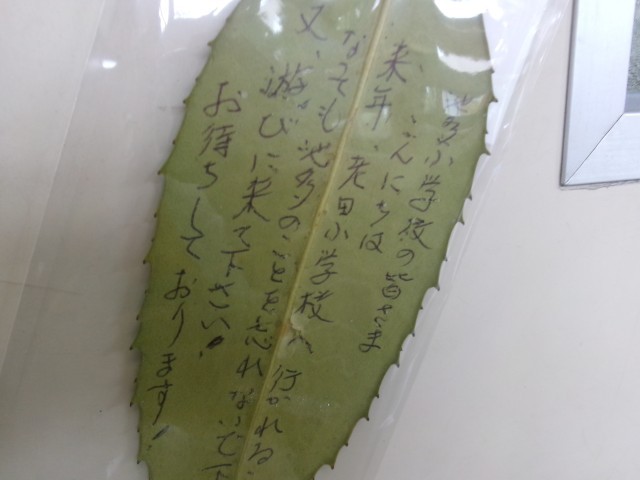 池多小学校の皆さま
こんにちは
来年、老田小学校へ行かれる
なっても池多のことを忘れないで下
又、遊びに来て下さい!
お待ちしております!